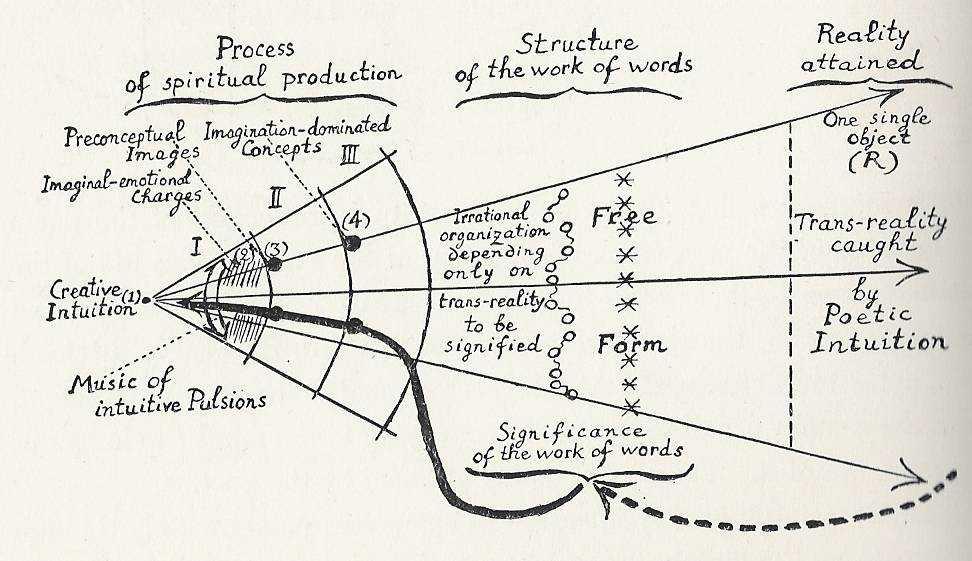 Process
of spiritual production
Structure
of the work of words
Reality
attained
Preconceptual
Images
Imagination-dominated
Concepts
Imaginal-emotional
Charges
I
II
III
(2)
(3)
(4)
Creative (1)
Intuition
Music of
intuitive Pulsions
Irrational
organization
depending
only on
trans-reality
to be
signified
Free
Form
One single
object
(R)
Trans-reality
caught
by
Poetic
Intuition
Significance
of the work of words